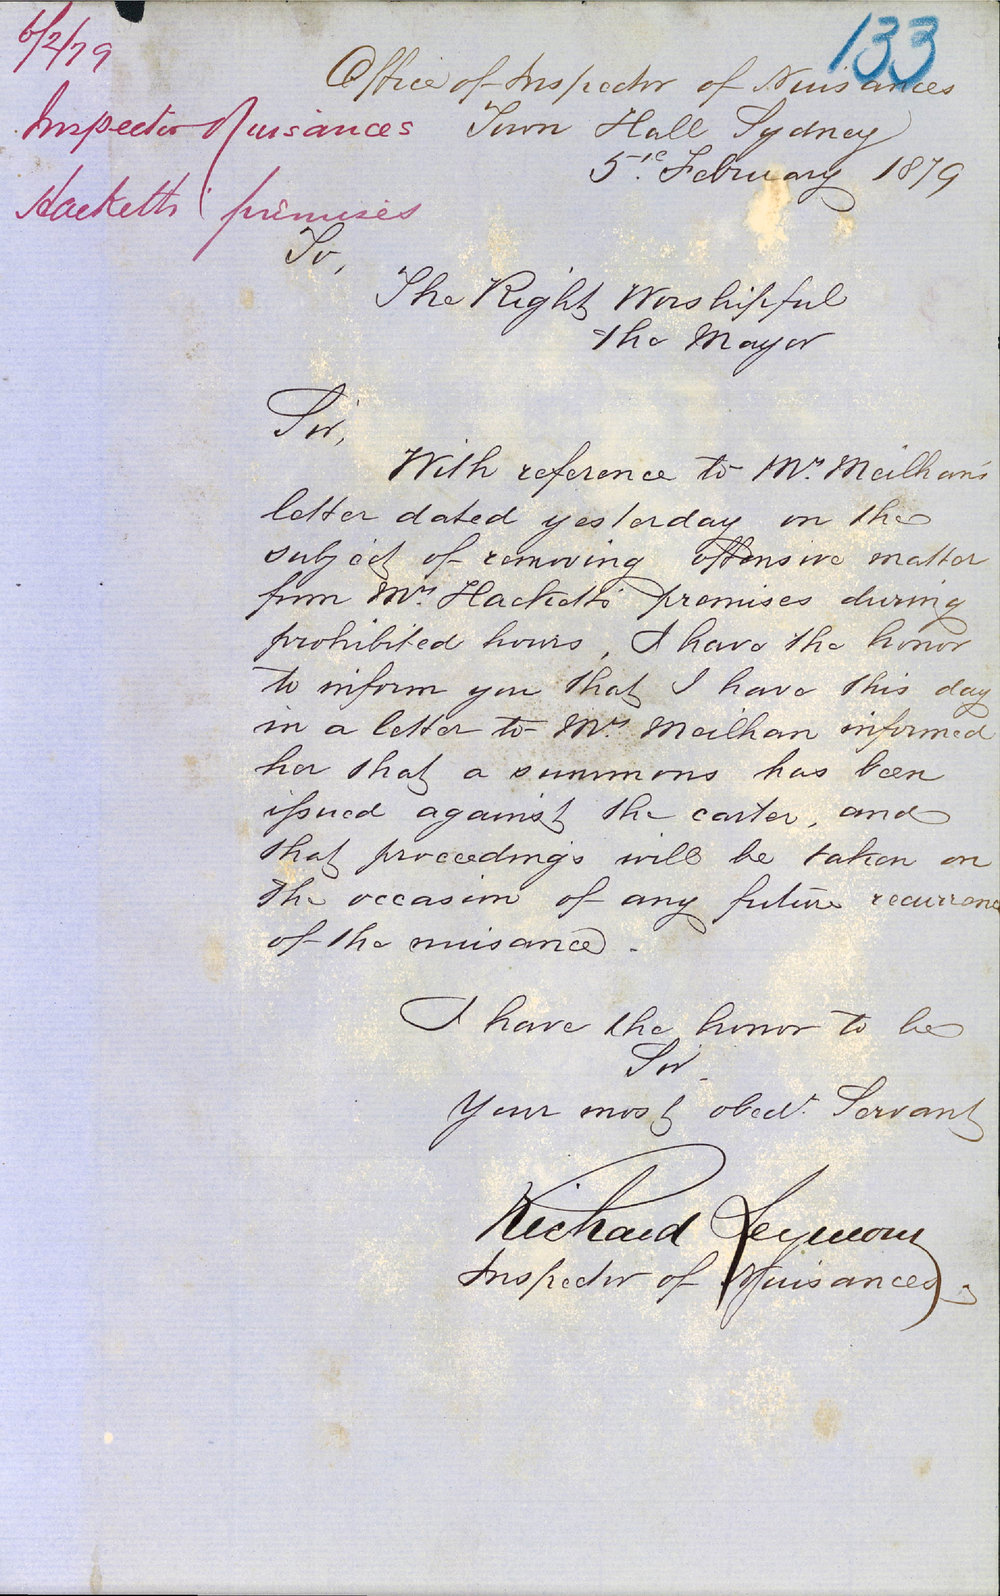 133
6/2/79
Inspector Nuisances
Hacketts' premises
Office of Inspector of Nuisances
Town Hall Sydney
5th. February 1879
To,
The Right Worshipful
the Mayor
Sir,
With reference to Mrs. Meilhan's
letter dated yesterday on the
subject of removing offensive matter
from Mrs. Hacketts' premises during
prohibited hours, I have the honor
to inform you that I have this day
in a letter to Mrs. Meilhan informed
her that a summons has been
issued against the carter, and
that proceedings will be taken on
the occasion of any future recurrence
of the nuisance.
I have the honor to be
Sir.
Your most obedt. Servant
Richard Seymour
Inspector of Nuisances.